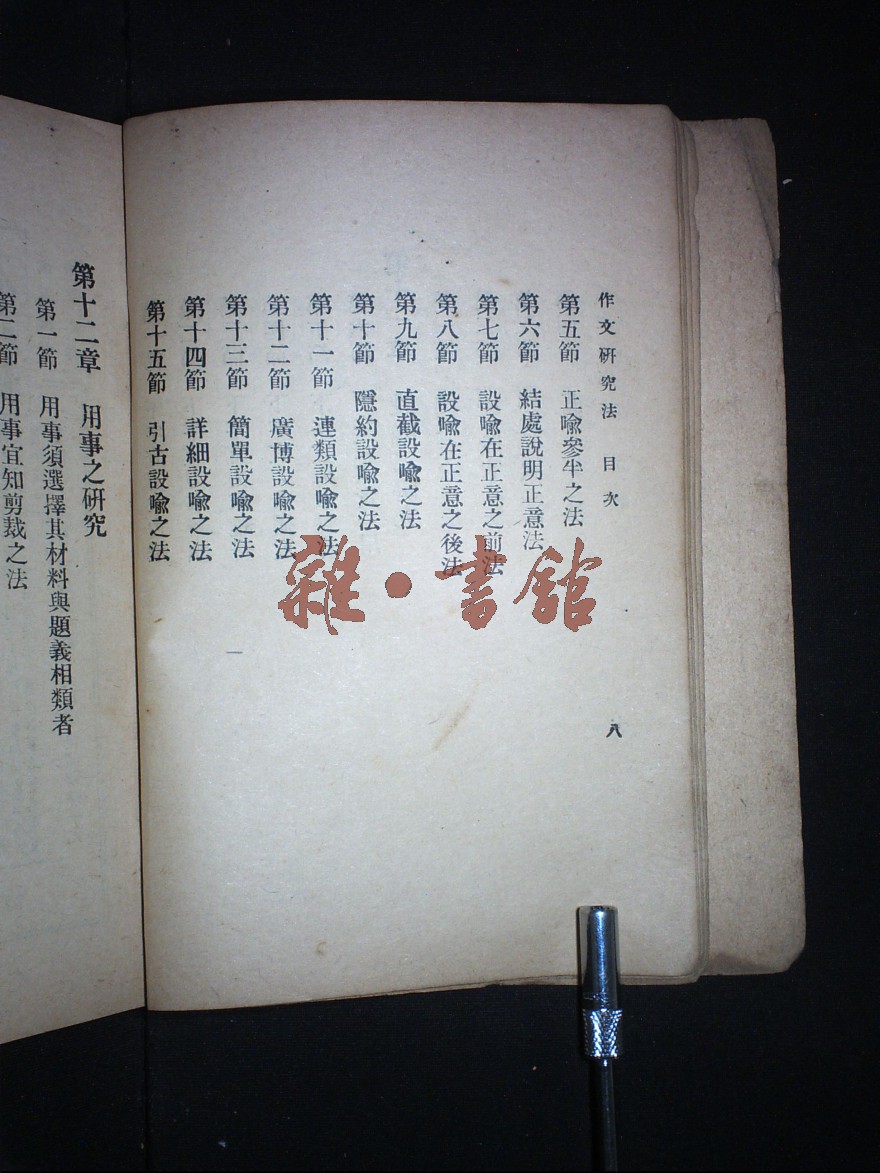 作文研究法 目次 八
第五節 正喻參半之法
第六節 結處說明正意法
第七節 設喻在正意之前法
第八節 設喻在正意之後法
第九節 直截設喻之法
第十節 隱約設喻之法
第十一節 連類設喻之法
第十二節 廣博設喻之法
第十三節 簡單設喻之法
第十四節 詳細設喻之法
第十五節 引古設喻之法
第十二章 用事之研究
第一節 用事須選擇其材料與題義相類者
第二節 用事宜知剪裁之法
雜·書館